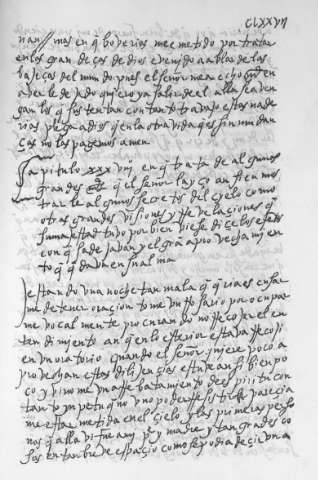 CLXXVII
nan // mas en q boverias me e metido por tratar
en las grandeças de dios e venido a ablar de las
bajeças del mundo pues el señor me a echo md en
averle dejado quiero ya salir de el alla se aven
gan los q sustentan con tanto travajo estas nade
rias plega a dios q en la otra vida q es sin mudan
ças no las pagemos amen
Capitulo xxxviij en q trata de algunas
grandes mds q el señor la yço ansi en mos
trarle algunos secretos del çielo como
otras grandes visiones y revelaciones q
su majestad tuvo por bien viese diçe los efetos
con q la dejavan y el gra aprovechamien
to q quedava en su alma
Estando una noche tan mala q queria escusar
me de tener oraçion tome un rrosario por ocupar
me vocalmente procurando no rrecojer el en
tendimiento aunq en lo esterior estava rrecojida
en un oratorio quando el señor quiere poco a
provechan estas dilijençias estuve ansi bien po
co y vinome un arrebatamiento de espiritu con
tanto inpetu q no uvo poder rresistir pareçia
me estar metida en el çielo y las primeras perso
nas q alla vi fue a mi padre y madre y tan grandes co
sas en tan breve espaçio como se podia deçir una